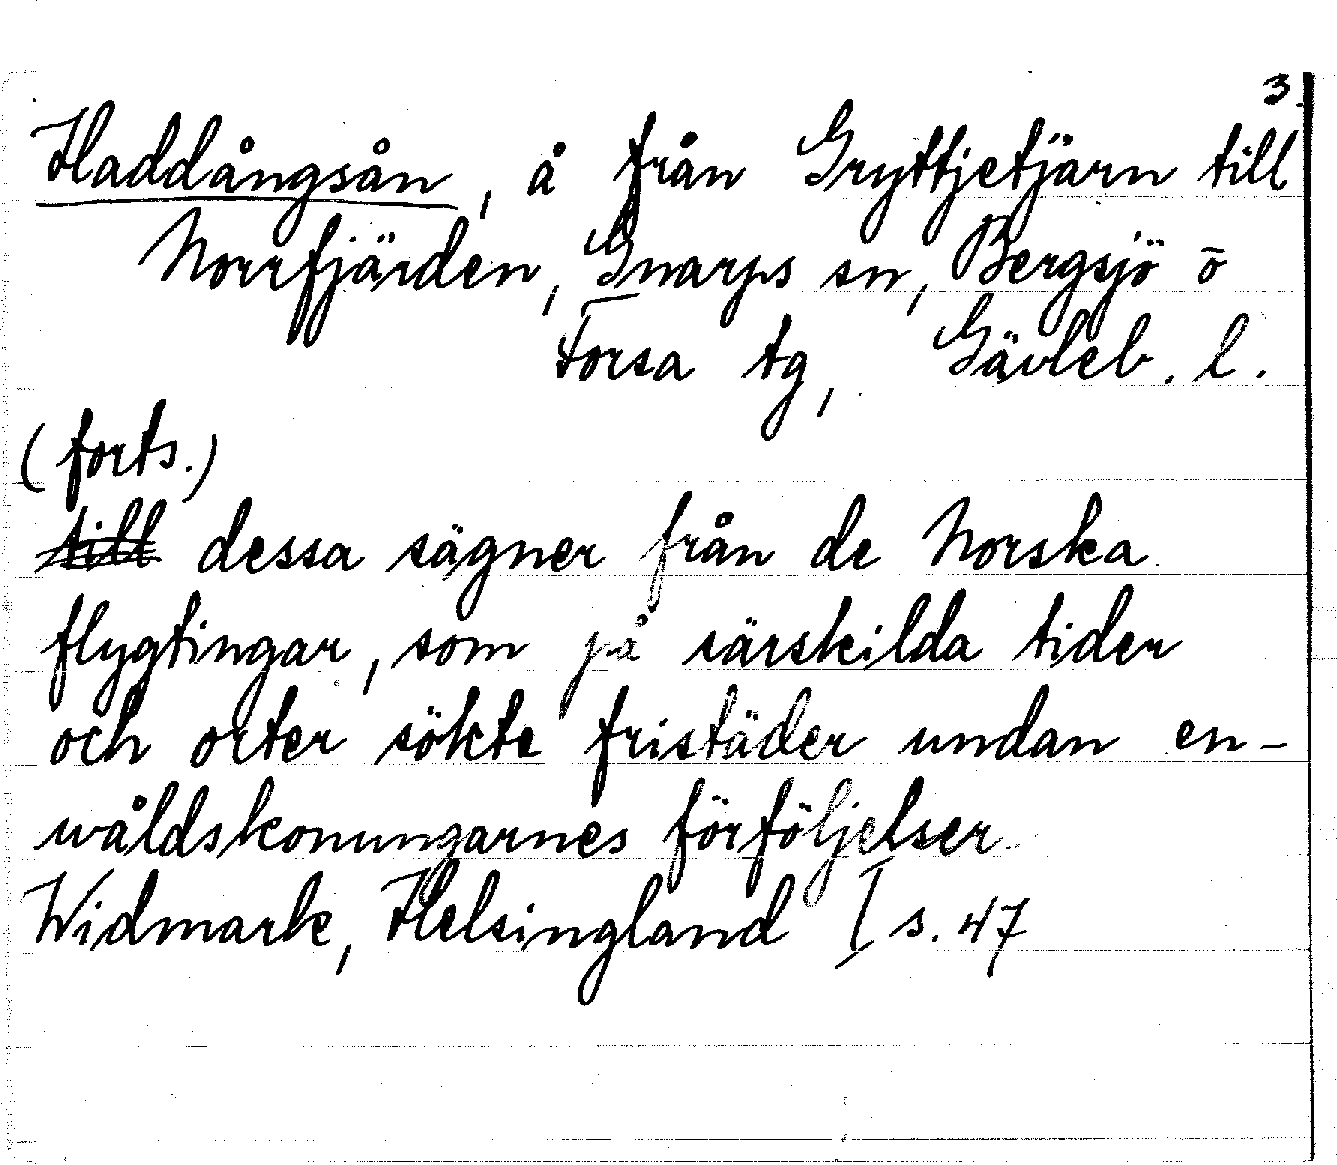 3.
Haddångsån, å från Gryttjetjärn till
Norrfjärden, Gnarps sn, Bergsjö o
Forsa tg, Gävleb. l.
(forts.)
till dessa sägner från de Norska
flygtingar, som på särskilda tider
och orter sökte fristäder undan en-
wåldskonungarnes förföljelser.
Widmark, Helsingland I s. 47